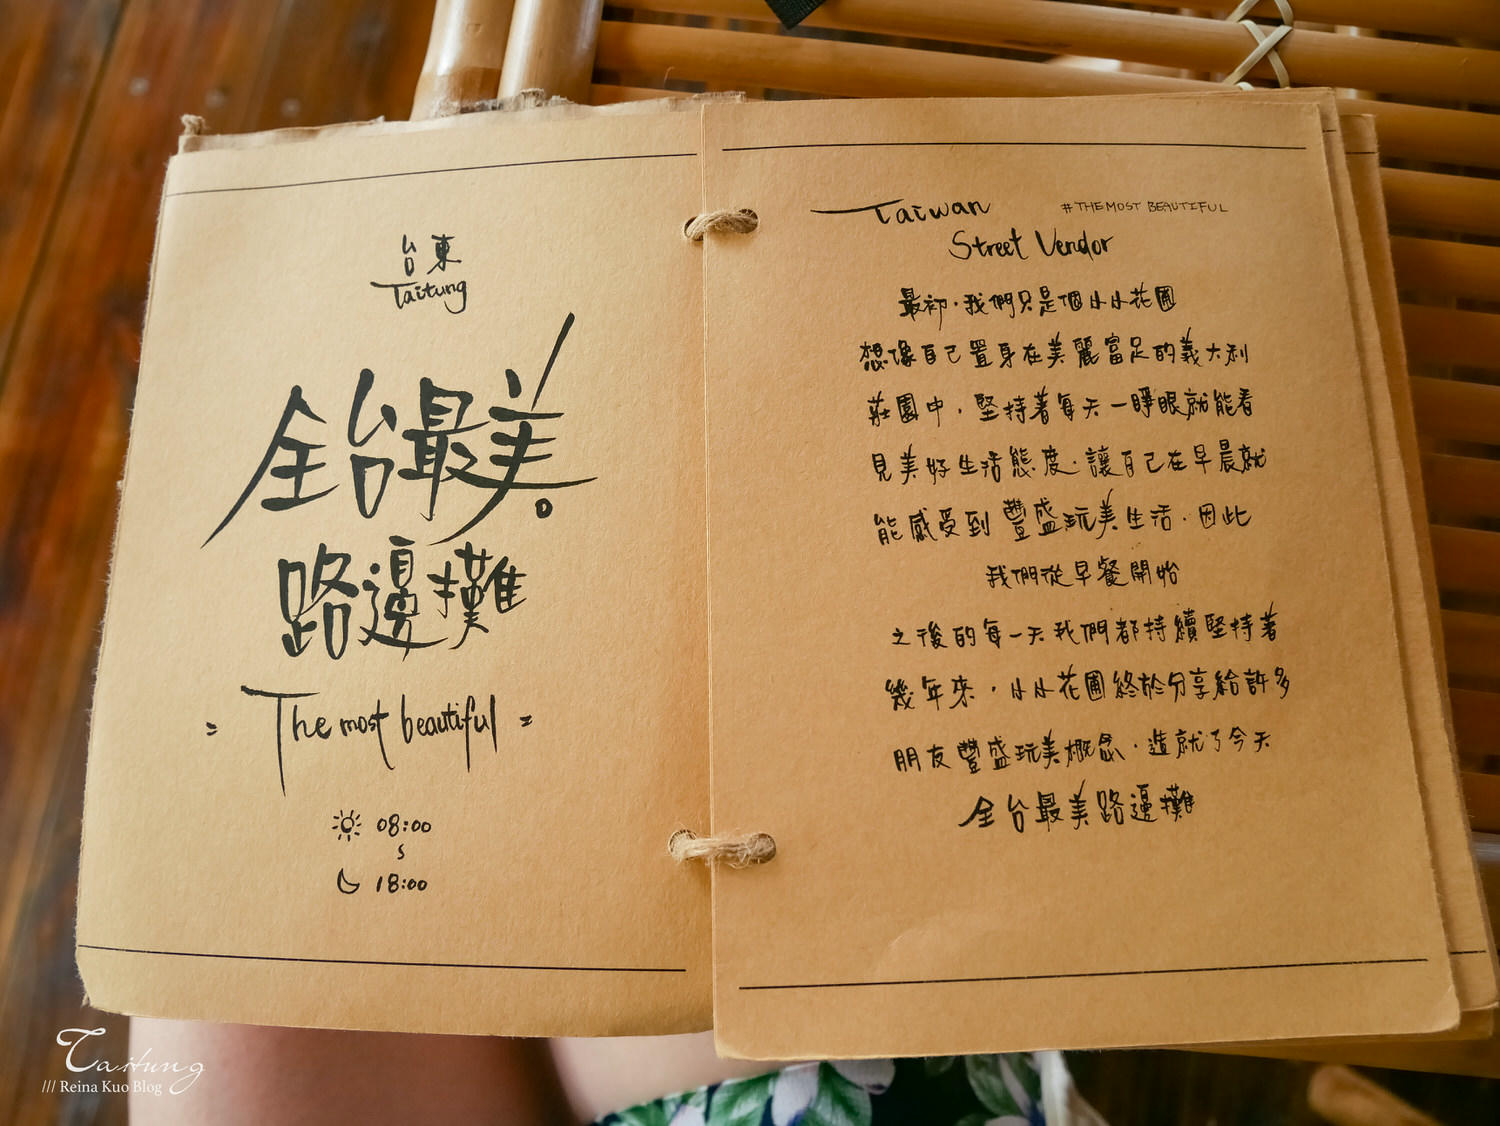 台東
Taitung
全台最美。
路邊攤
= The most beautiful =
08:00
~
18:00
Taiwan #THE MOST BEAUTIFUL
Street Vendor
最初，我們只是個小小花圃
想像自己置身在美麗富足的義大利
莊園中，堅持著每天一睜眼就能看
見美好生活態度，讓自己在早晨就
能感受到豐盛玩美生活，因此
我們從早餐開始
之後的每一天我們都持續堅持著
幾年來，小小花圃終於分享給許多
朋友豐盛玩美概念，造就了今天
全台最美路邊攤
Taitung
/// Reina Kuo Blog